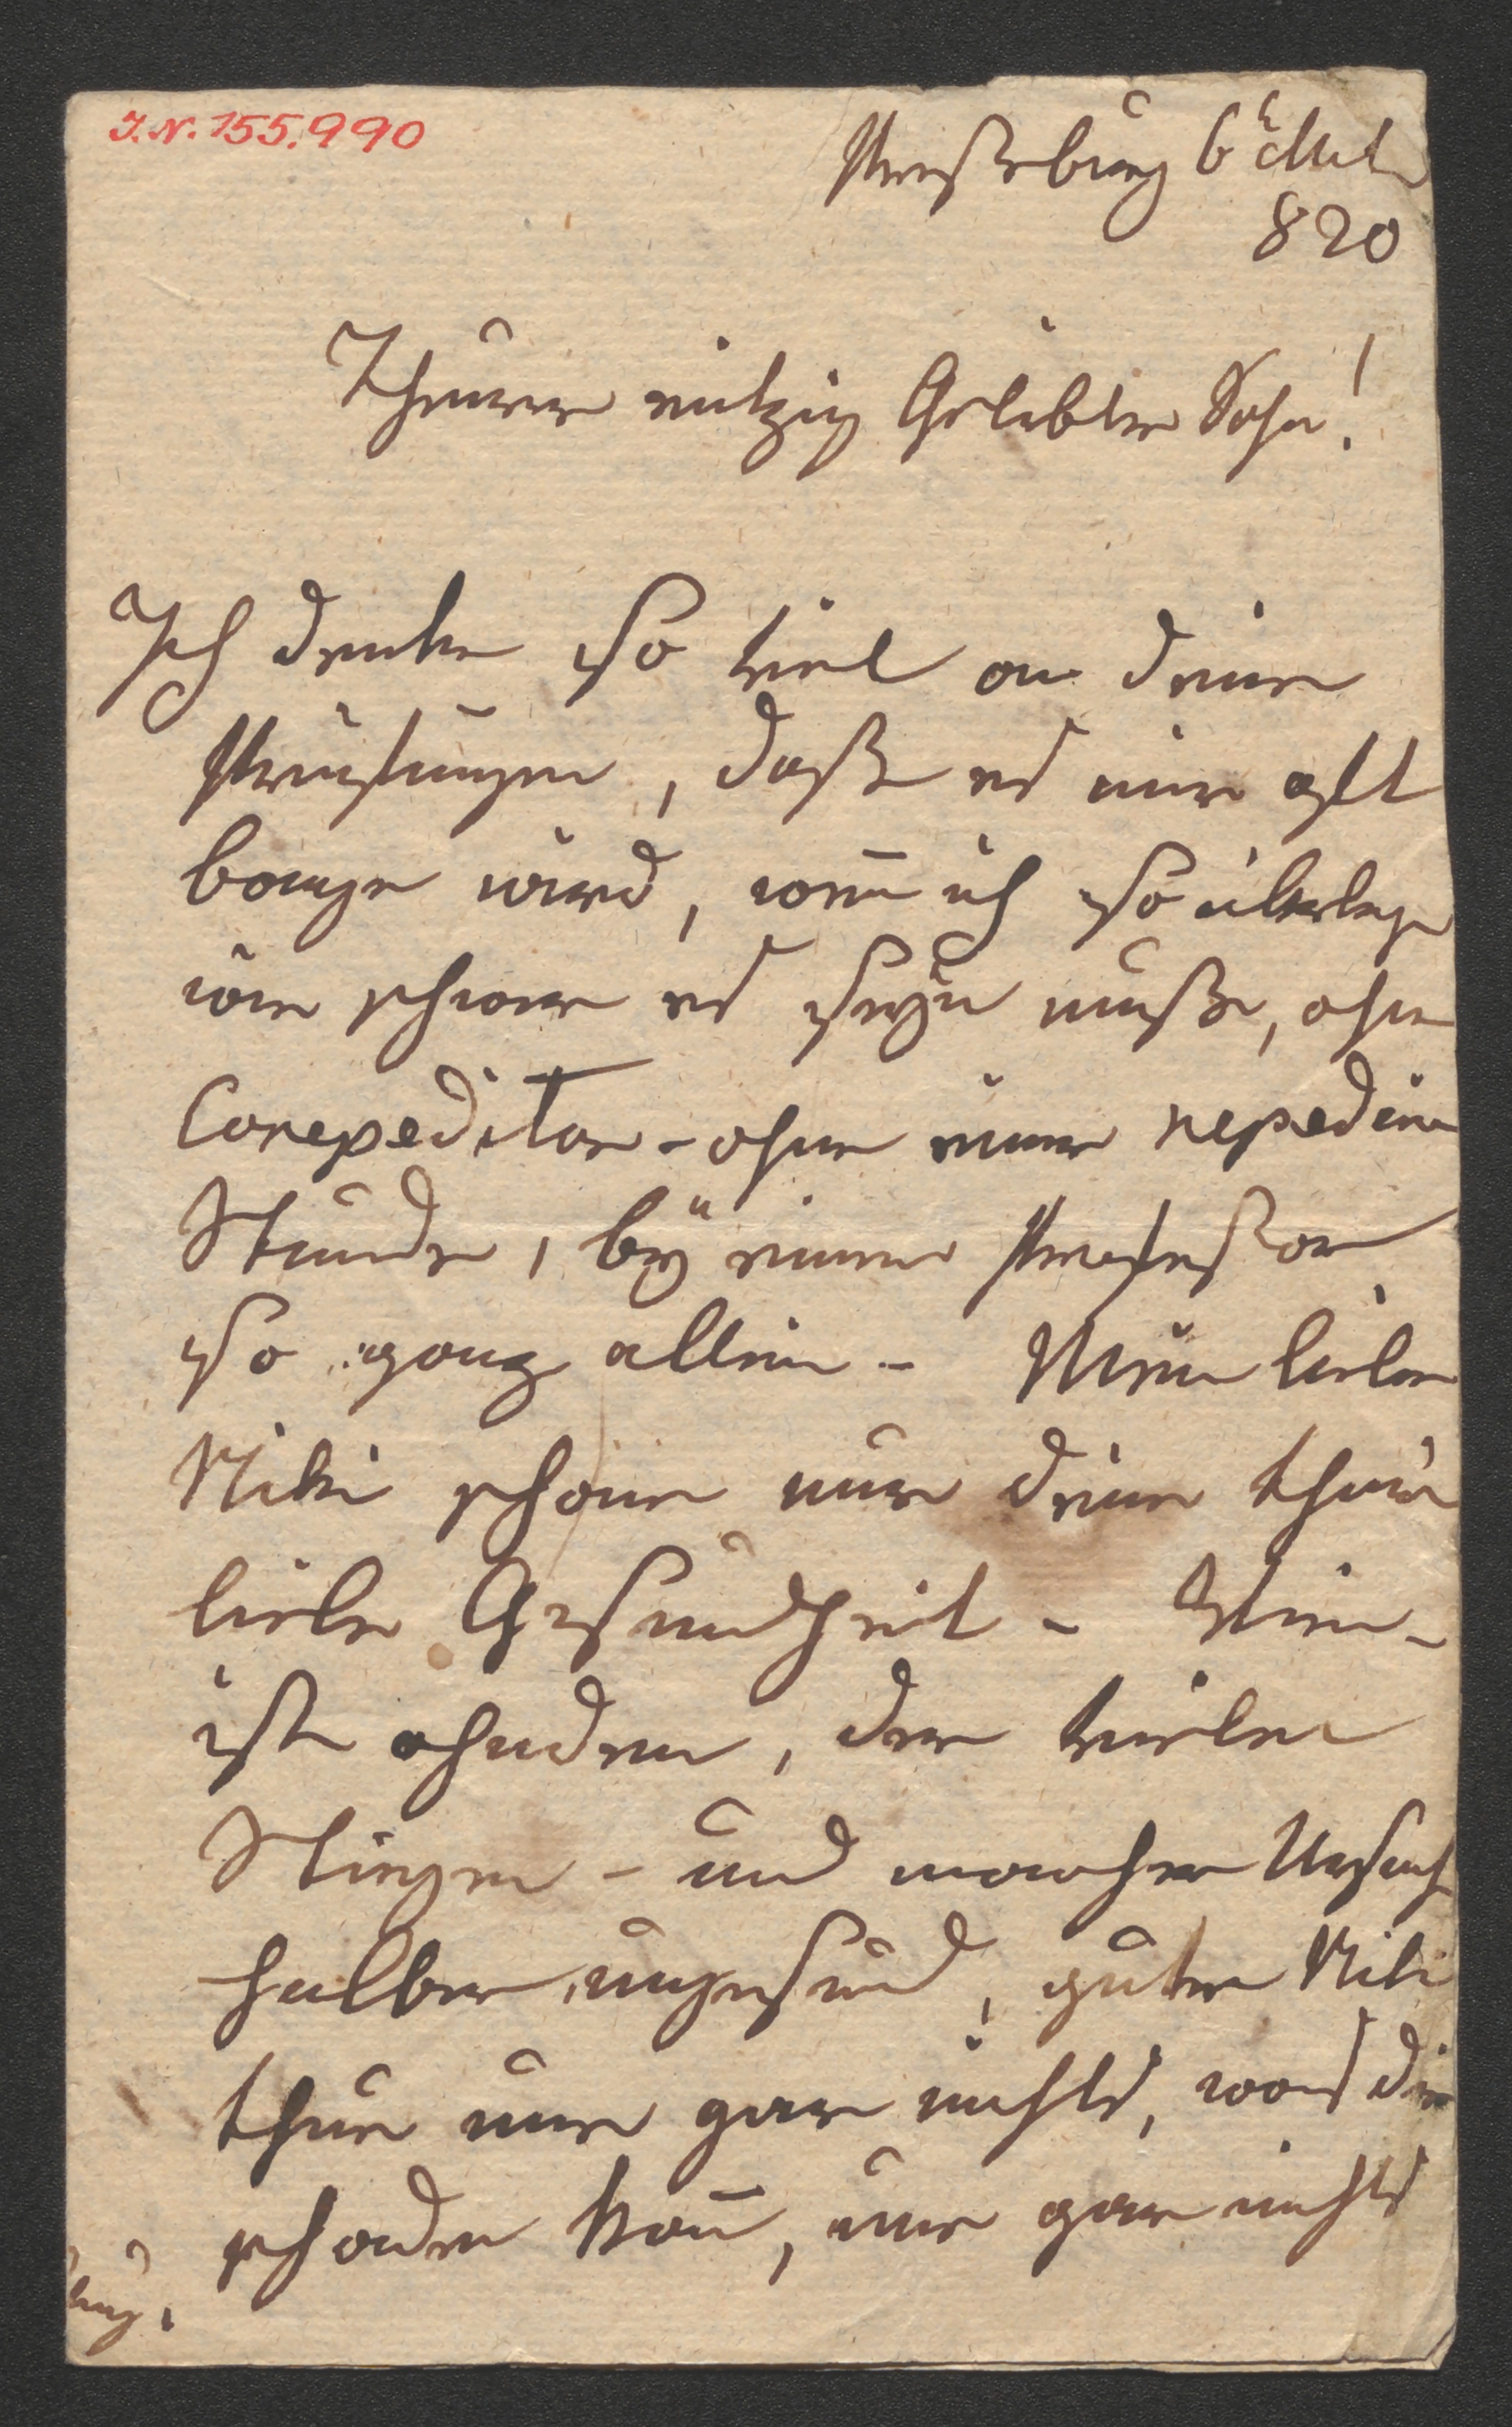 I.N. 155.990
Preßburg 6t Met
820
Theurer eintzig Gelibter Sohn!
Ich denke so viel an deine
Prüfungen, daß es mir oft
bange wird, wen̄ ich so überlege
wie schwer es seyn muß, ohne
Corepeditor - ohne einer repedir
Stunde, beÿ einen Professor
so ganz allein - Mein lieber
Niki schone nur deine theure
liebe Gesundheit - Wien -
ist ohndem, der vielen
Stiegen - und mancher Ursach
halber ungesund, guter Niki
thue nur gar nichts, was dir
schaden kan̄, nur gar nichts